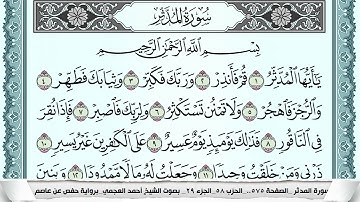 سُورَةُ المُدَّثِّرِ
بِسْمِ اللَّهِ الرَّحْمَٰنِ الرَّحِيمِ
يَا أَيُّهَا الْمُدَّثِّرُ ١ قُمْ فَأَنذِرْ ٢ وَرَبَّكَ فَكَبِّرْ ٣ وَثِيَابَكَ فَطَهِّرْ ٤
وَالرُّجْزَ فَاهْجُرْ ٥ وَلَا تَمْنُن تَسْتَكْثِرُ ٦ وَلِرَبِّكَ فَاصْبِرْ ٧ فَإِذَا نُقِرَ
فِي النَّاقُورِ ٨ فَذَٰلِكَ يَوْمَئِذٍ يَوْمٌ عَسِيرٌ ٩ عَلَى الْكَافِرِينَ غَيْرُ يَسِيرٍ ١٠
ذَرْنِي وَمَنْ خَلَقْتُ وَحِيدًا ١١ وَجَعَلْتُ لَهُ مَالًا مَّمْدُودًا ١٢ وَبَنِينَ
سورة المدثر_الصفحة ٥٧٥_ الحزب ٥٨_الجزء ٢٩_ بصوت الشيخ أحمد العجمي_ برواية حفص عن عاصم